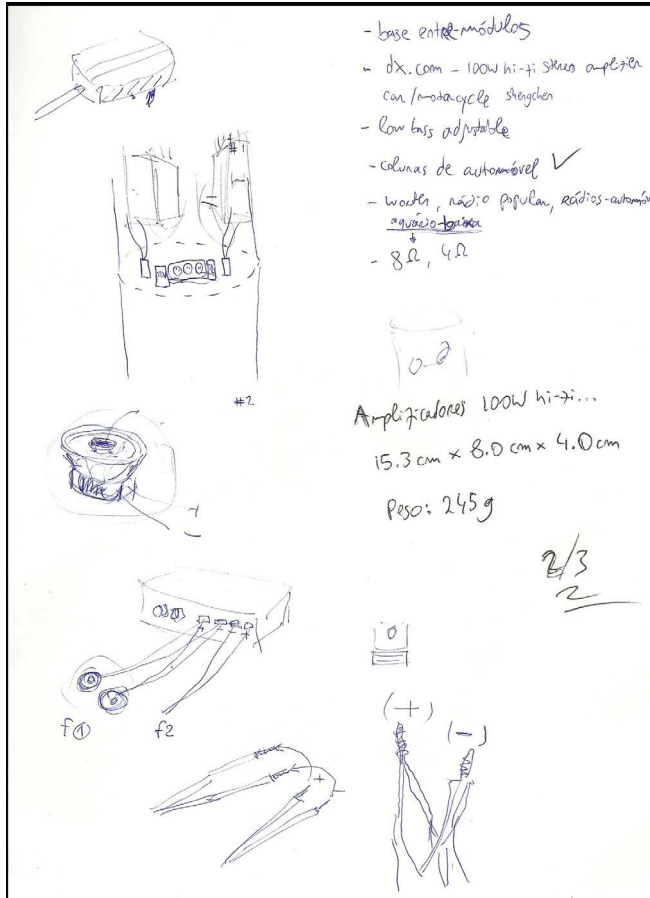 - base entre-módulos
- dx.com - 100W hi-fi stereo amplifier
car/motorcycle shengchen
- low bass adjustable
- colunas de automóvel ✓
- worten, rádio popular, rádios-automóv
aquário-
- 8Ω, 4Ω
#2
Amplificadores 100W hi-fi...
15.3 cm x 8.0 cm x 4.0 cm
Peso: 245g
2/3
2
+
-
+ - - +
f① f2
(+) (-)
+
-